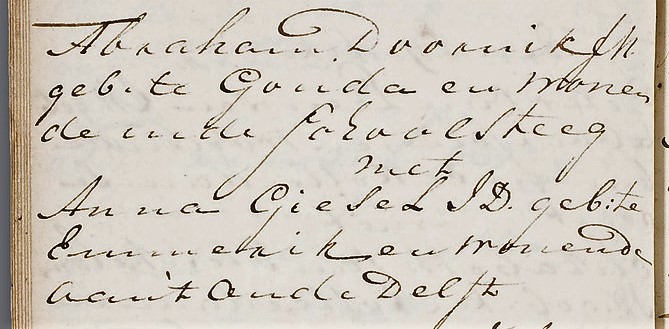 Abraham Doornik JM
geb: te Gouda en wonen
de in de Schoolsteeg
met
Anna Giesel J.D. geb: te
Emmerik en wonende
aan't Oude Delft